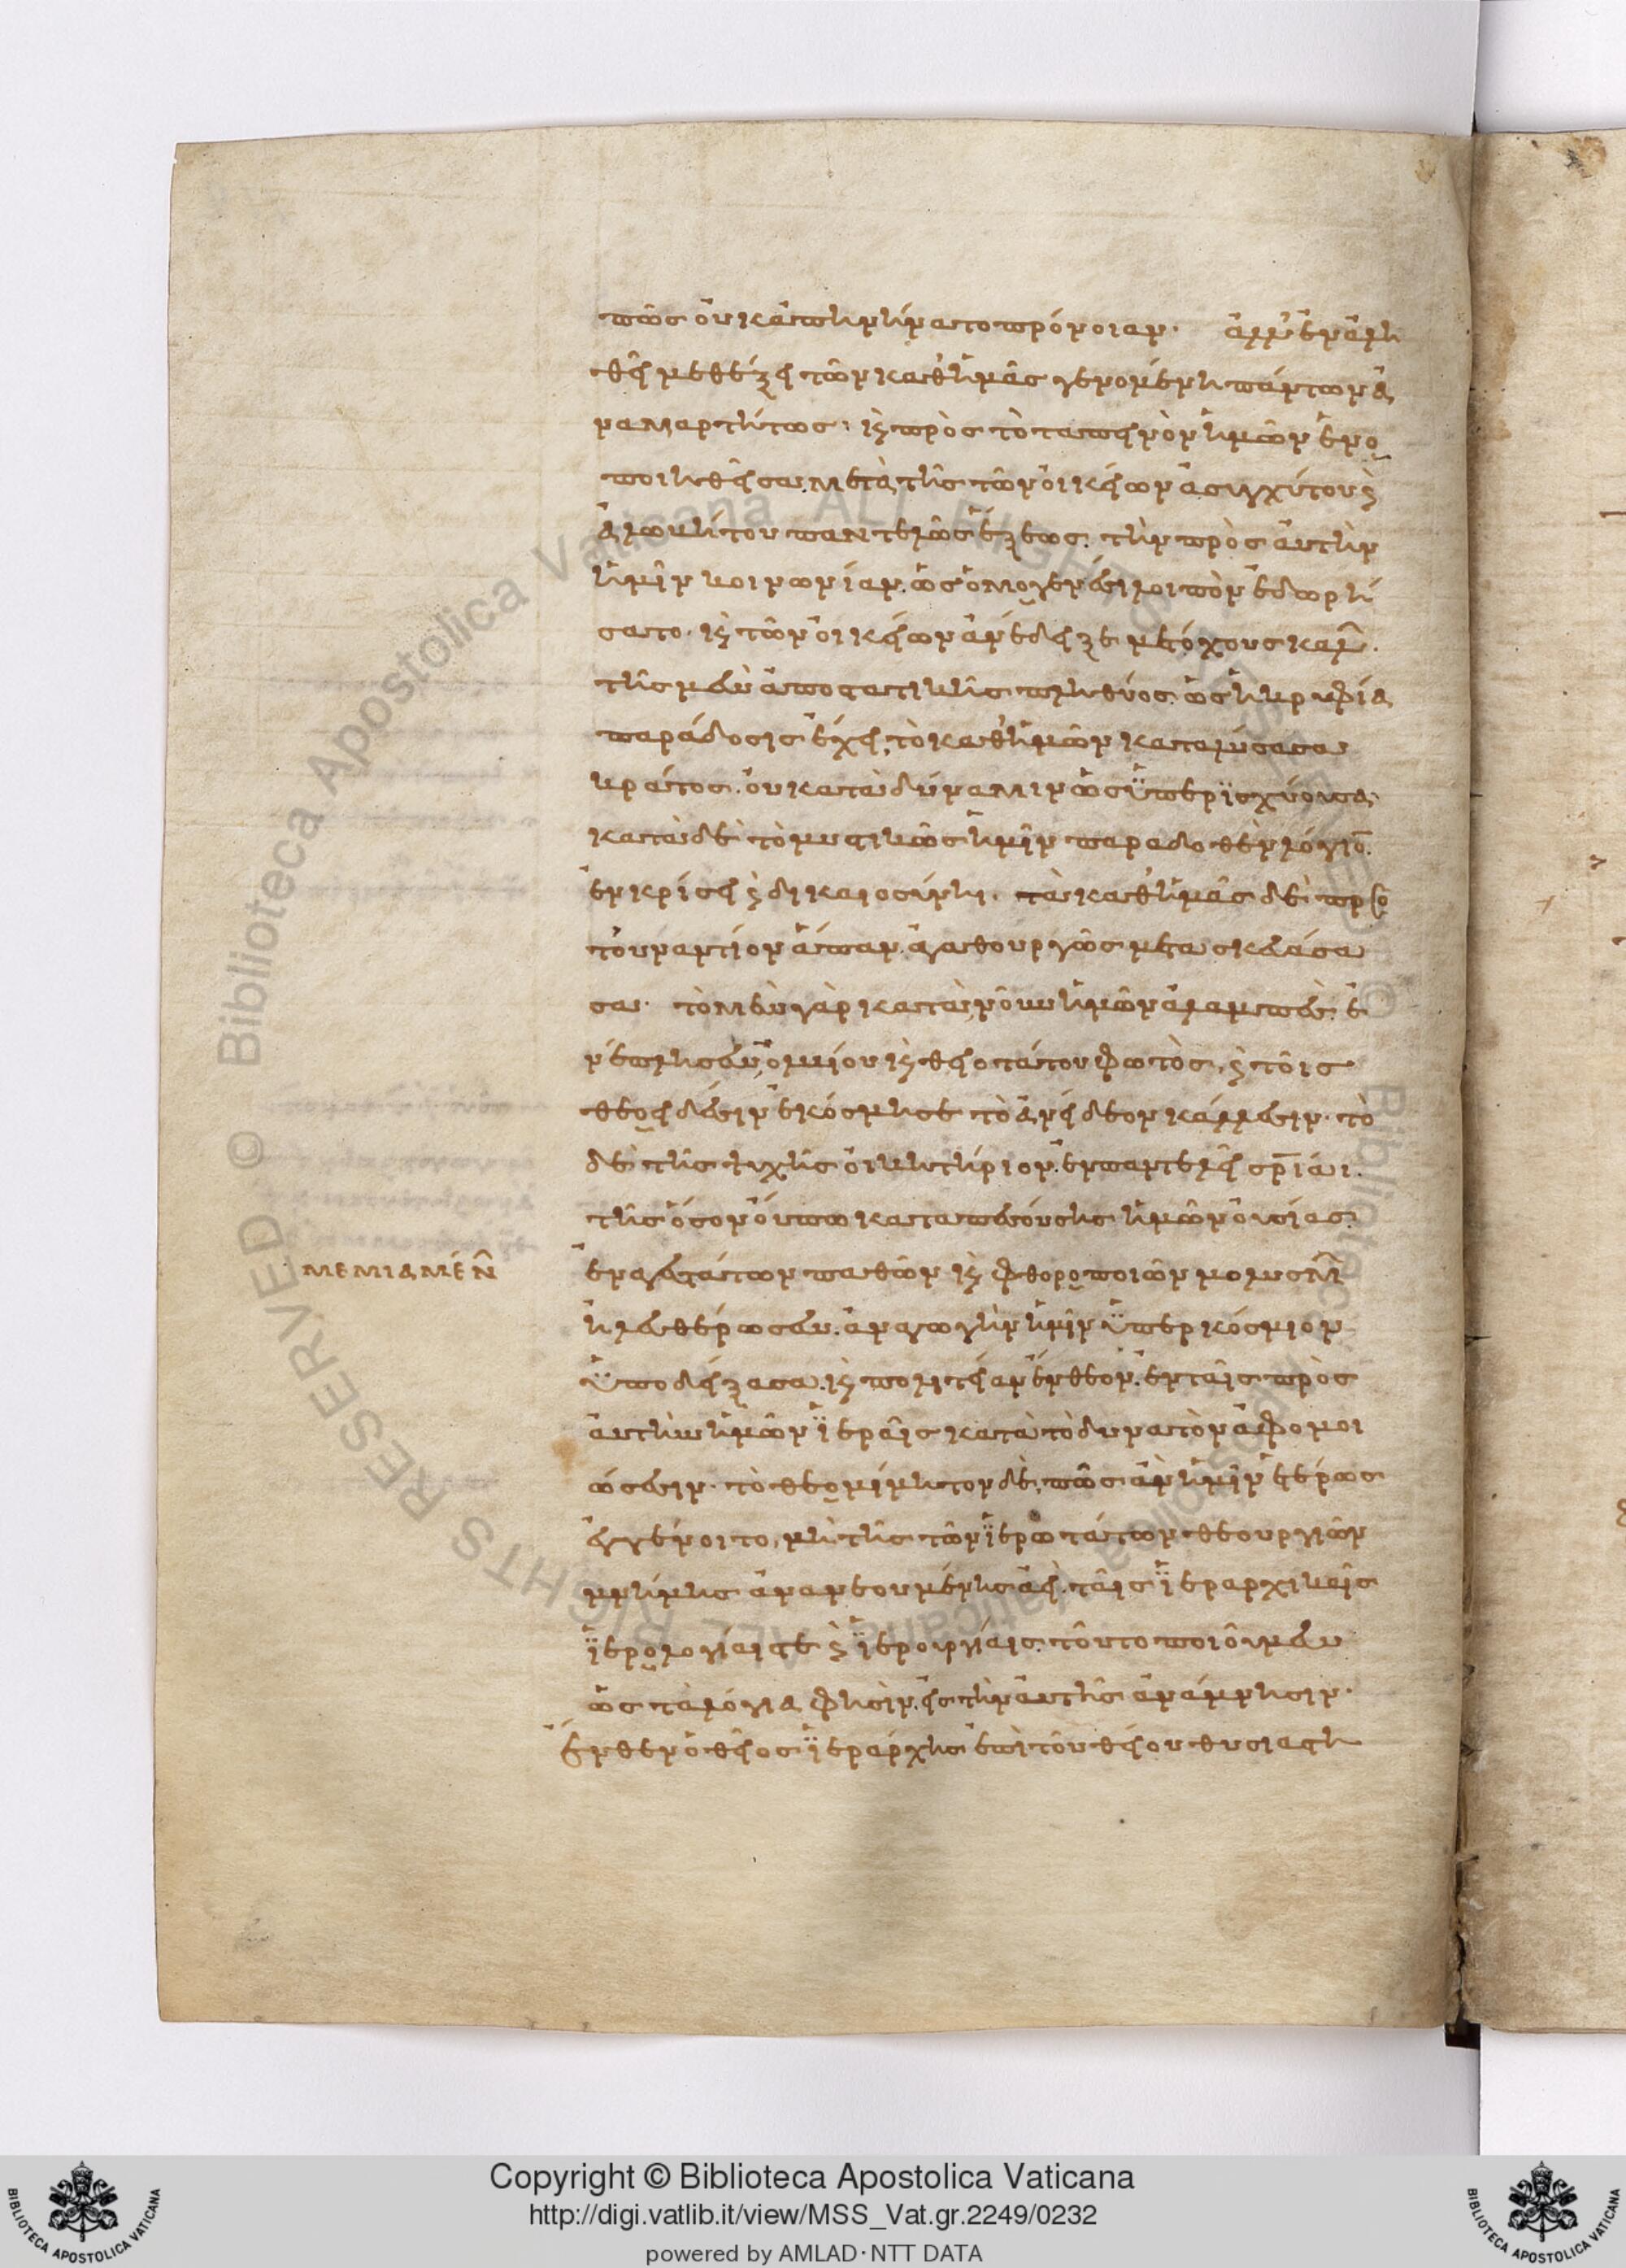 πῶς οὐκ ἀπηνήνατο πρόνοιαν· ἀλλ' ἐν ἀλη
θεῖ μεθέξει τῶν καθ' ἡμᾶς γενομένη πάντων ἀ
ναμαρτήτως· κ(αὶ) πρὸς τὸ ταπεινὸν ἡμῶν ἑνο
ποιηθεῖσα. μετὰ τῆς τῶν οἰκείων ἀσυγχύτου (καὶ)
ἀλωβήτου παντελῶς ἕξεως. τὴν πρὸς αὐτὴν
ἡμῖν κοινωνίαν. ὡς ὁμογενέσι λοιπὸν ἐδωρή
σατο· κ(αὶ) τῶν οἰκείων ἀνέδειξε μετόχους καλῶν.
τῆς μὲν ἀποστατικῆς πληθύος. ὡς ἡ κρυφία
παράδοσις ἔχει, τὸ καθ' ἡμῶν καταλύσασα
κράτος. οὐ κατὰ δύναμιν ὡς ὑπερϊσχύουσα·
κατὰ δὲ τὸ μυστικῶς ἡμῖν παραδοθὲν λόγιον.
ἐν κρίσει (καὶ) δικαιοσύνῃ. τὰ καθ' ἡμᾶς δὲ πρὸς
τοὐναντίον ἅπαν. ἀγαθουργῶς μετασκευάσα
σα· τὸ μὲν γὰρ κατὰ νοῦν ἡμῶν ἀλαμπὲς. ἐ
νέπλησεν ὀλβίου κ(αὶ) θειοτάτου φωτὸς, (καὶ) τοῖς
θεοειδέσιν ἐκόσμησε τὸ ἀνείδεον κάλλεσιν· τὸ
δὲ τῆς ψυχῆς οἰκητήριον. ἐν παντελεῖ σ(ωτη)ρίᾳ.
τῆς ὅσον οὔπω καταπεσούσης ἡμῶν οὐσίας.
ΜΕΜΙΑΜΕΝ(ων)
ἐναγεστάτων παθῶν κ(αὶ) φθοροποιῶν μολυσμῶν
ἠλευθέρωσεν. ἀναγωγὴν ἡμῖν ὑπερκόσμιον
ὑποδείξασα. κ(αὶ) πολιτείαν ἔνθεον. ἐν ταῖς πρὸς
αὐτὴν ἡμῶν ἱεραῖς κατὰ τὸ δυνατὸν ἀφομοι
ώσεσιν· τὸ θεομίμητον δὲ, πῶς ἂν ἡμῖν ἑτέρως
ἐγγένοιτο, μὴ τῆς τῶν ἱερωτάτων θεουργιῶν
μνήμης ἀνανεουμένης ἀεὶ. ταῖς ἱεραρχικαῖς
ἱερολογίαις τε (καὶ) ἱερουργίαις. τοῦτο ποιοῦμεν
ὡς τὰ λόγια φησὶν. εἰς τὴν αὐτῆς ἀνάμνησιν.
Ἔνθεν ὁ θεῖος ἱεράρχης ἐπὶ τοῦ θείου θυσιαστη